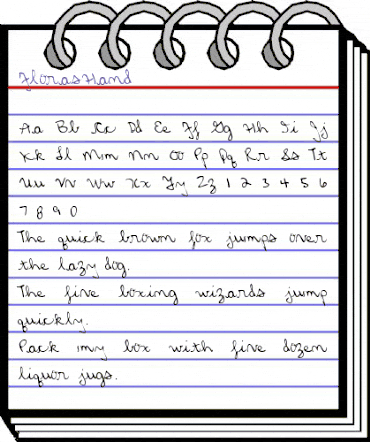 FlorasHand
Aa Bb Cc Dd Ee Ff Gg Hh Ii Jj
Kk Ll Mm Nn Oo Pp Qq Rr Ss Tt
Uu Vv Ww Xx Yy Zz 1 2 3 4 5 6
7 8 9 0
The quick brown fox jumps over
the lazy dog.
The five boxing wizards jump
quickly.
Pack my box with five dozen
liquor jugs.